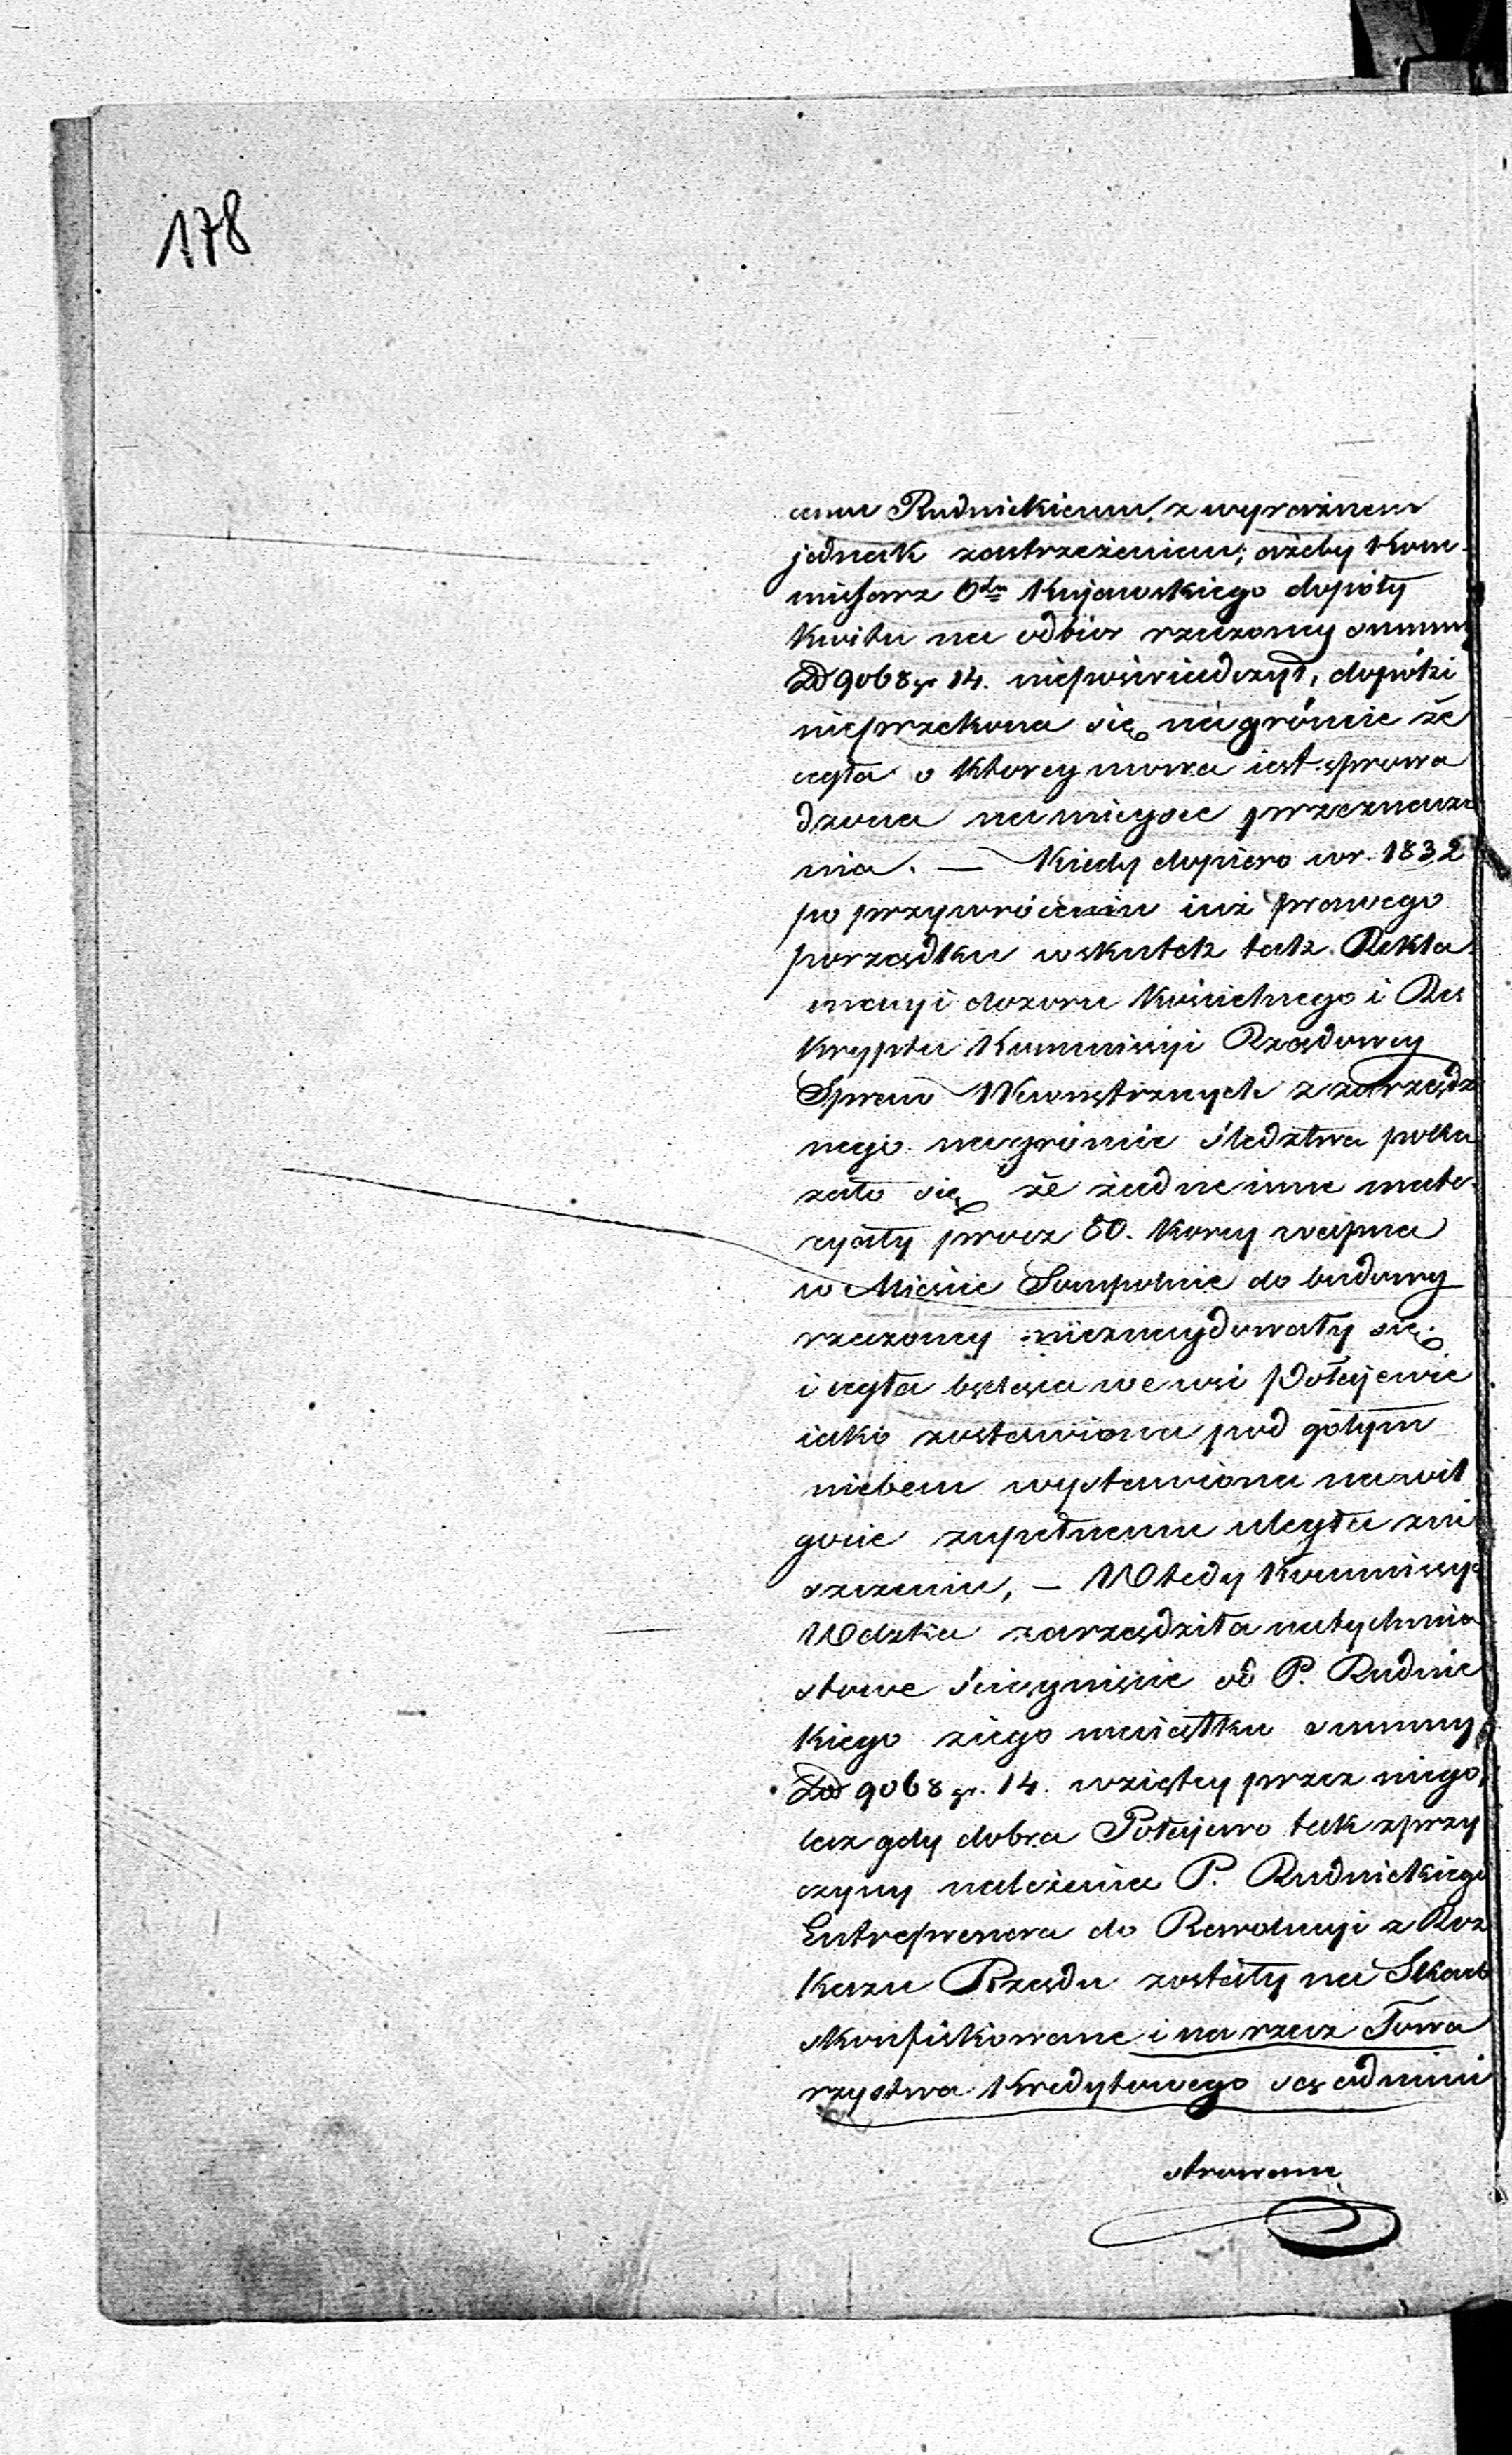 178
amu Rudnickiemu, z wyraźnem
jednak zastrzeżeniem, ażeby Kom-
missarz Obdu Kujawskiego dopóty
Kwitu na odbior rzeczoney summy
Zł 9068 gr 14. niepoświadczył, dopóki
nieprzekona się na gróncie że
cegła o ktorey mowa iest sprowa
dzona na mieysce przeznacze
nia. — Kiedy dopiero w r. 1832
po przywróceniu iuż prawego
porządku wskutek tak Rekla-
macyi dozoru Kościelnego i Res
kryptu Kommissyi Rządowey
Spraw Wewnętrznych z zarządzo
nego na gróncie śledztwa poka
zało się że żadne inne mate-
ryały procz 80. Korcy wapna
w Mieście Sompolnie do budowy
rzeczoney nieznaydowały się
i cegła będąca we wsi Połajewie
iako zostawiona pod gołym
niebem wystawiona na wil
goć zupełnemu uległa zni
szczeniu, — Wtedy Kommissya
Wdzka zarządziła natychmia
stowe ściągnięcie od P. Rudnic
kiego z iego maiątku summy
Zł 9068 gr. 14. wziętey przez niego,
lecz gdy dobra Połajewo tak z przy
czyny należenia P. Rudnickiego
Entreprenera do Rewolucyi z Roz
kazu Rządu zostały na Skarb
skonfiskowane i na rzecz Towa
rzystwa Kredytowego są admini
strowane